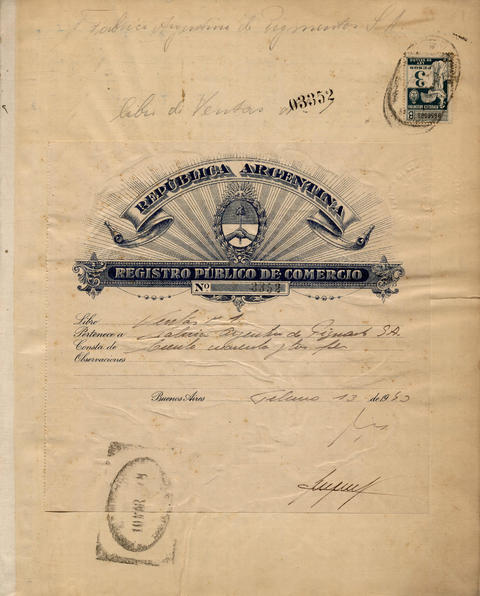 Fabrica Argentina de Pigmentos S.A.
Libro de Ventas
03352
3
PESOS
REPÚBLICA ARGENTINA
REGISTRO PÚBLICO DE COMERCIO
Nº 3352
Libro Ventas
Pertenece a Fabrica Argentina de Pigmentos S.A.
Consta de
Observaciones
Buenos Aires Febrero 13 de 1943
10 MAR